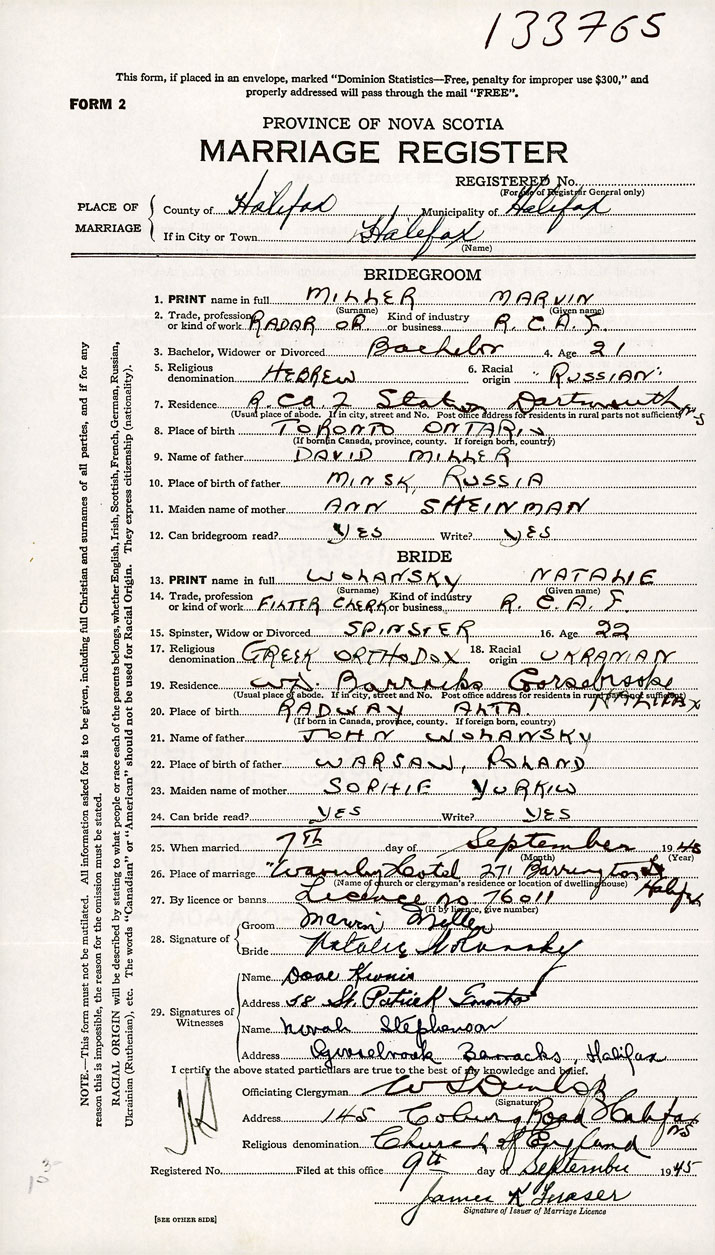 133765
This form, if placed in an envelope, marked "Dominion Statistics—Free, penalty for improper use $300," and
properly addressed will pass through the mail "FREE".
FORM 2
PROVINCE OF NOVA SCOTIA
MARRIAGE REGISTER
REGISTERED No.
(For use of Registrar General only)
PLACE OF MARRIAGE
County of Halifax Municipality of Halifax
If in City or Town Halifax
(Name)
BRIDEGROOM
1. PRINT name in full MILLER MARVIN
(Surname) (Given name)
2. Trade, profession or kind of work RADAR OP. Kind of industry or business R.C.A.F.
3. Bachelor, Widower or Divorced Bachelor 4. Age 21
5. Religious denomination HEBREW 6. Racial origin "RUSSIAN"
7. Residence R.C.A.F Station Dartmouth NS
(Usual place of abode. If in city, street and No. Post office address for residents in rural parts not sufficient)
8. Place of birth TORONTO ONTARIO
(If born in Canada, province, county. If foreign born, country)
9. Name of father DAVID MILLER
10. Place of birth of father MINSK, RUSSIA
11. Maiden name of mother ANN SHEINMAN
12. Can bridegroom read? YES Write? YES
BRIDE
13. PRINT name in full WOLANSKY NATALIE
(Surname) (Given name)
14. Trade, profession or kind of work FILTER CLERK Kind of industry or business R.C.A.F.
15. Spinster, Widow or Divorced SPINSTER 16. Age 22
17. Religious denomination GREEK ORTHODOX 18. Racial origin UKRANIAN
19. Residence W.D. Barracks Gorsebrooke HALIFAX
(Usual place of abode. If in city, street and No. Post office address for residents in rural parts not sufficient)
20. Place of birth RADWAY ALTA.
(If born in Canada, province, county. If foreign born, country)
21. Name of father JOHN WOLANSKY
22. Place of birth of father WARSAW, POLAND
23. Maiden name of mother SOPHIE YURKIW
24. Can bride read? YES Write? YES
25. When married 7TH day of September 1945
(Month) (Year)
26. Place of marriage "Waverley Hotel 271 Barrington St Halifax
(Name of church or clergyman's residence or location of dwelling house)
27. By licence or banns Licence no 76011
(If by licence, give number)
28. Signature of
Groom Marvin Miller
Bride Natalie Wolansky
29. Signatures of Witnesses
Name Dave
Address 58 St. Patrick Toronto
Name Norah Stephenson
Address Goosebrook Barracks, Halifax
I certify the above stated particulars are true to the best of my knowledge and belief.
Officiating Clergyman W S Dunlop
(Signature)
Address 145 Coburg Road Halifax NS
Religious denomination Church of England
Registered No. Filed at this office 9th day of September 1945
James K Fraser
Signature of Issuer of Marriage Licence
[SEE OTHER SIDE]
NOTE.—This form must not be mutilated. All information asked for is to be given, including full Christian and surnames of all parties, and if for any
reason this is impossible, the reason for the omission must be stated.
RACIAL ORIGIN will be described by stating to what people or race each of the parents belongs, whether English, Irish, Scottish, French, German, Russian,
Ukrainian (Ruthenian), etc. The words "Canadian" or "American" should not be used for Racial Origin. They express citizenship (nationality).